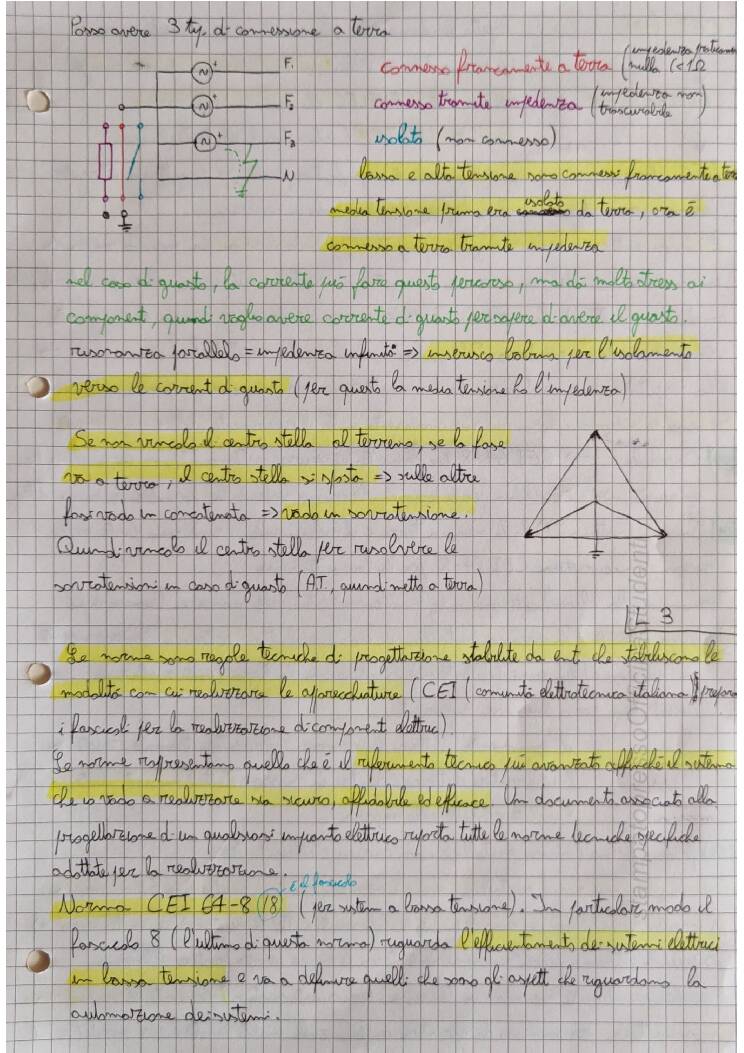 Posso avere 3 tip. di connessione a terra
F1
F2
F3
N
connesso francamente a terra (impedenza praticamente nulla (<1Ω
connesso tramite impedenza (impedenza non trascurabile)
isolato (non connesso)
bassa e alta tensione sono connessi francamente a terra
media tensione prima era isolato da terra, ora è
connesso a terra tramite impedenza
nel caso di guasto, la corrente può fare questo percorso, ma dà molto stress ai
componenti, quindi voglio avere corrente di guasto per sapere di avere il guasto.
risonanza parallelo = impedenza infinita => inserisco bobina per l'isolamento
verso le correnti di guasto (per questo la media tensione ho l'impedenza)
Se non vincolo il centro stella al terreno, se la fase
va a terra, il centro stella si sposta => sulle altre
fasi vado in concatenata => vado in sovratensione.
Quindi vincolo il centro stella per risolvere le
sovratensioni in caso di guasto (A.T., quindi metto a terra)
L 3
Le norme sono regole tecniche di progettazione stabilite da enti che stabiliscono le
modalità con cui realizzare le apparecchiature (CEI (comunità elettrotecnica italiana) prepara
i fascicoli per la realizzazione di componenti elettrici).
Le norme rappresentano quello che è il riferimento tecnico più avanzato affinché il sistema
che io vado a realizzare sia sicuro, affidabile ed efficace. Un documento associato alla
progettazione di un qualsiasi impianto elettrico riporta tutte le norme tecniche specifiche
adottate per la realizzazione.
è il fascicolo
Norma CEI 64-8 (/8) (per sistemi a bassa tensione). In particolar modo il
fascicolo 8 (l'ultimo di questa norma) riguarda l'efficientamento dei sistemi elettrici
in bassa tensione e va a definire quelli che sono gli aspetti che riguardano la
automazione dei sistemi.